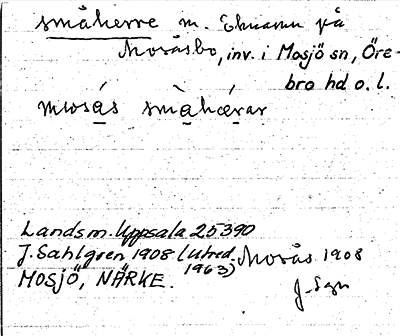 småherre m. Öknamn på
Moråsbo, inv. i Mosjö sn, Öre-
bro hd o. l.
mωsás smàhǽrar
Landsm. Uppsala 25390
J. Sahlgren 1908 (utred. Morås 1908
1963)
MOSJÖ, NÄRKE. J. Sgn